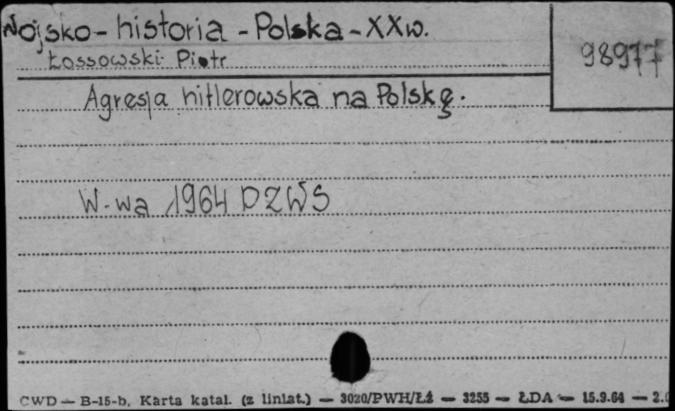 Wojsko - historia - Polska - XX w.
Łossowski Piotr
98977
Agresja hitlerowska na Polskę.
W-wa 1964 PZWS
CWD — B-15-b. Karta katal. (z liniat.) — 3020/PWH/Łź — 3255 — ŁDA — 15.9.64 — 2.0